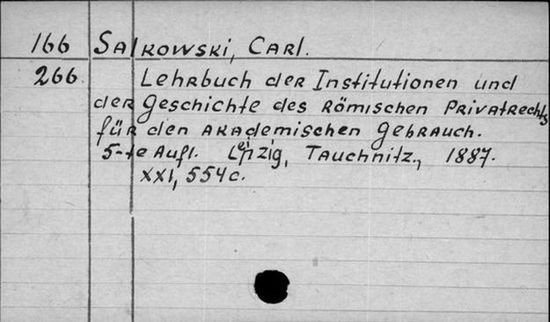 166 Salkowski, Carl.
266 Lehrbuch der Institutionen und
der Geschichte des Römischen Privatrechts
für den akademischen Gebrauch.
5-te Aufl. Leipzig, Tauchnitz, 1887.
XXI, 554 c.